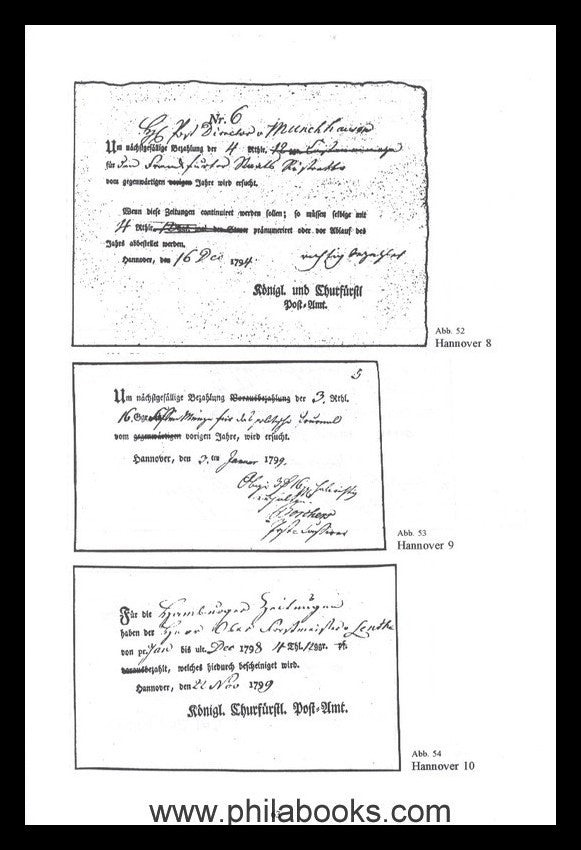 Nr. 6
Post Director v Münchhausen
Um nächstgefällige Bezahlung der 4 Rthlr.
für den Frankfurter
vom gegenwärtigen vorigen Jahre wird ersucht.
Wenn diese Zeitungen continuiret werden sollen; so müssen selbige mit
4 Rthlr. pränumeriret oder vor Ablauf des
Jahrs abbestellet werden.
richtig bezahlet
Hannover, den 16 Dec 1794.
Königl. und Churfürstl
Post-Amt.
Abb. 52
Hannover 8
5
Um nächstgefällige Bezahlung Vorausbezahlung der 3. Rthl.
16 Ggr. Münze für das politische Journal
vom gegenwärtigen vorigen Jahre, wird ersucht.
Hannover, den 3.ten Januar 1799.
Borchers
Abb. 53
Hannover 9
Für die Hamburger Zeitungen
haben der Herr Ober Forstmeister v Lenthe
von pr. Jan bis ult. Dec 1798 4 Thl. 12 gr.
vorausbezahlt, welches hiedurch bescheiniget wird.
Hannover, den 22 Nov 1799
Königl. Churfürstl. Post-Amt.
Abb. 54
Hannover 10
www.philabooks.com